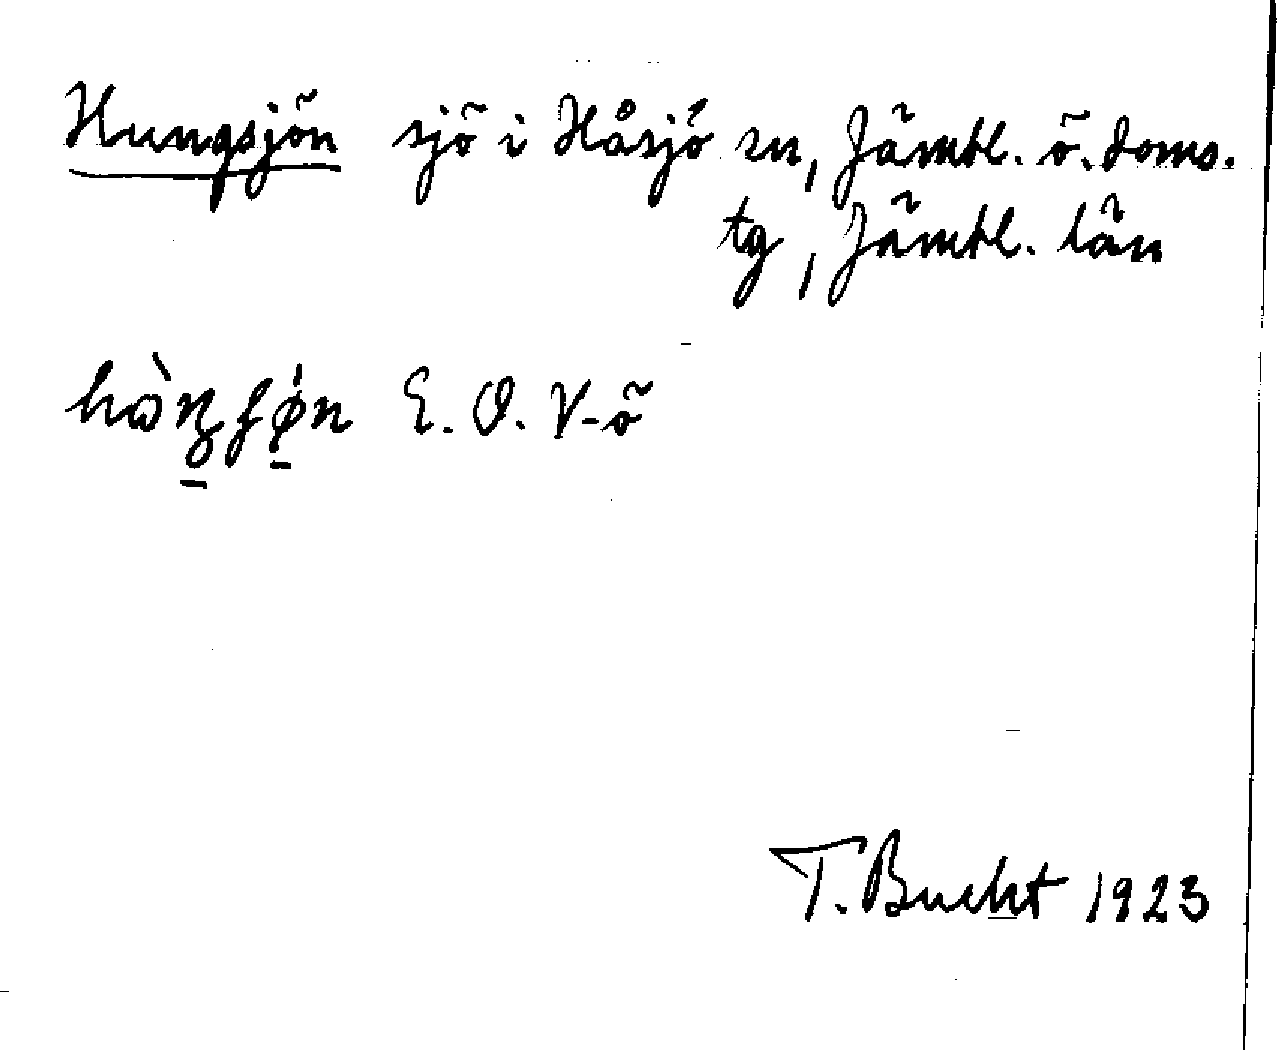 Hungsjön sjö i Håsjö sn, Jämtl. ö. doms.
tg, Jämtl. län
E. O. V-ö
T. Bucht 1923